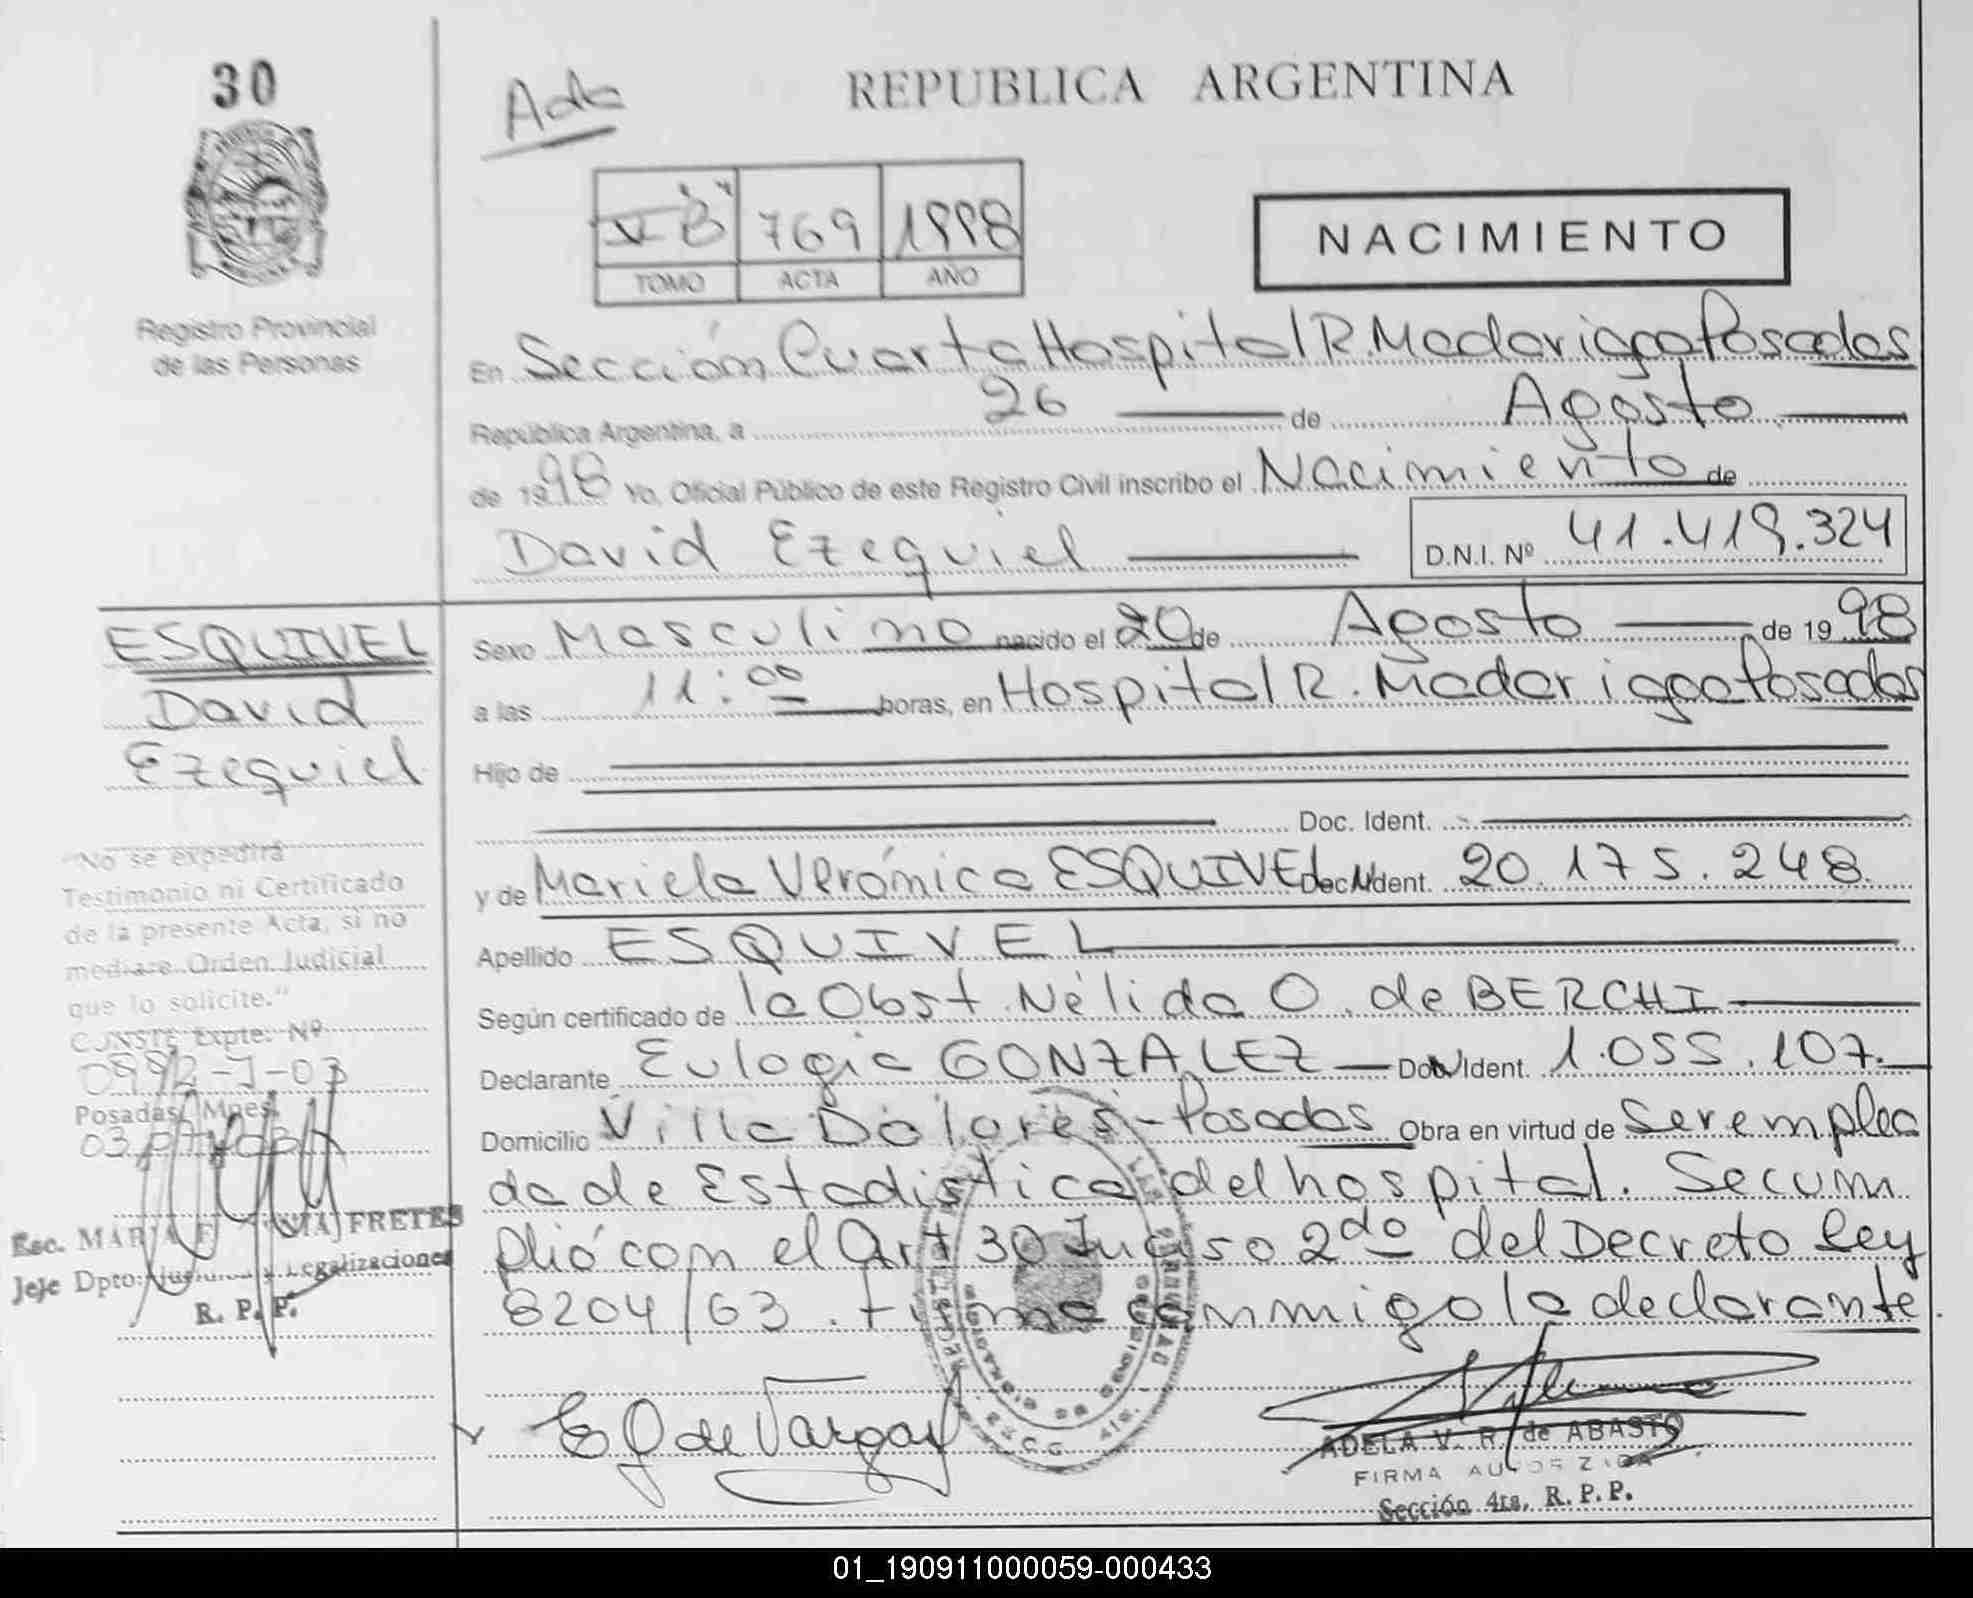 30
Registro Provincial
de las Personas
REPUBLICA ARGENTINA
769 1998
TOMO ACTA AÑO
NACIMIENTO
En Sección Cuarta Hospital R. Madariaga Posadas
República Argentina, a 26 de Agosto
de 1998 Yo, Oficial Público de este Registro Civil inscribo el Nacimiento de
David Ezequiel D.N.I. Nº 41.419.324
ESQUIVEL
David
Ezequiel
Sexo Masculino nacido el 20 de Agosto de 1998
a las 11:00 horas, en Hospital R. Madariaga Posadas
Hijo de
Doc. Ident.
y de Mariela Verónica ESQUIVEL Doc. Ident. 20.175.248
Apellido ESQUIVEL
Según certificado de la Obst. Nélida O. de BERCHI
Declarante Eulogia GONZALEZ Doc. Ident. 1.055.107.
Domicilio Villa Dolores - Posadas Obra en virtud de Ser emplea
da de Estadística del hospital. Se cum
plió con el Art 30 Inciso 2do del Decreto Ley
8204/63. Firma conmigo la declarante.
"No se expedirá
Testimonio ni Certificado
de la presente Acta, si no
mediare Orden Judicial
que lo solicite."
CONSTE Expte: Nº
Posadas, Mnes.
Esc. MARIA FRETES
Jefe Dpto. Legalizaciones
R. P. P.
E G de Vargas
ADELA V. R. de ABASTO
FIRMA AUTORIZADA
Sección 4ta. R. P. P.
01_190911000059-000433